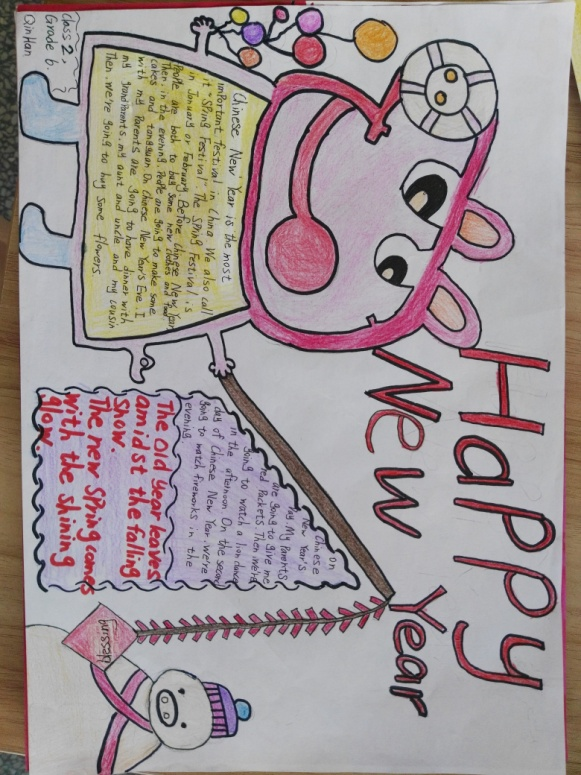 Happy
New Year
Class 2,
Grade 6.
QinHan
Chinese New Year is the most
important festival in China. We also call
it "Spring Festival". The Spring Festival is
in January or February. Before Chinese New Year
People are both to buy some new clothes and food
Then. in the evening. People are going to make some
cakes and tangyuan On Chinese New Year's Eve. I
with my Parents are going to have dinner with
my grandparents. my aunt and uncle and my cousin
Then. we're going to buy some flowers
On
Chinese
New Year's
Day. My Parents
are going to give me
red Packets. Then we're
going to watch a lion dance
in the afternoon. On the second
day of Chinese New Year. we're
going to watch fireworks in the
evening.
The old year leaves
amidst the falling
snow.
The new spring comes
with the shining
glow.
Blessing